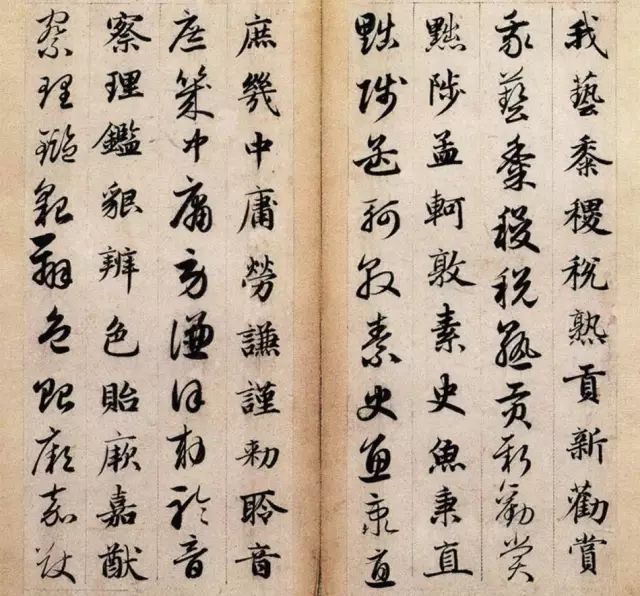 我藝黍稷稅熟貢新勸賞
我藝黍稷稅熟貢新勸賞
黜陟孟軻敦素史魚秉直
黜陟孟軻敦素史魚秉直
庶幾中庸勞謙謹勅聆音
庶幾中庸勞謙謹勅聆音
察理鑑貌辨色貽厥嘉猷
察理鑑貌辨色貽厥嘉猷